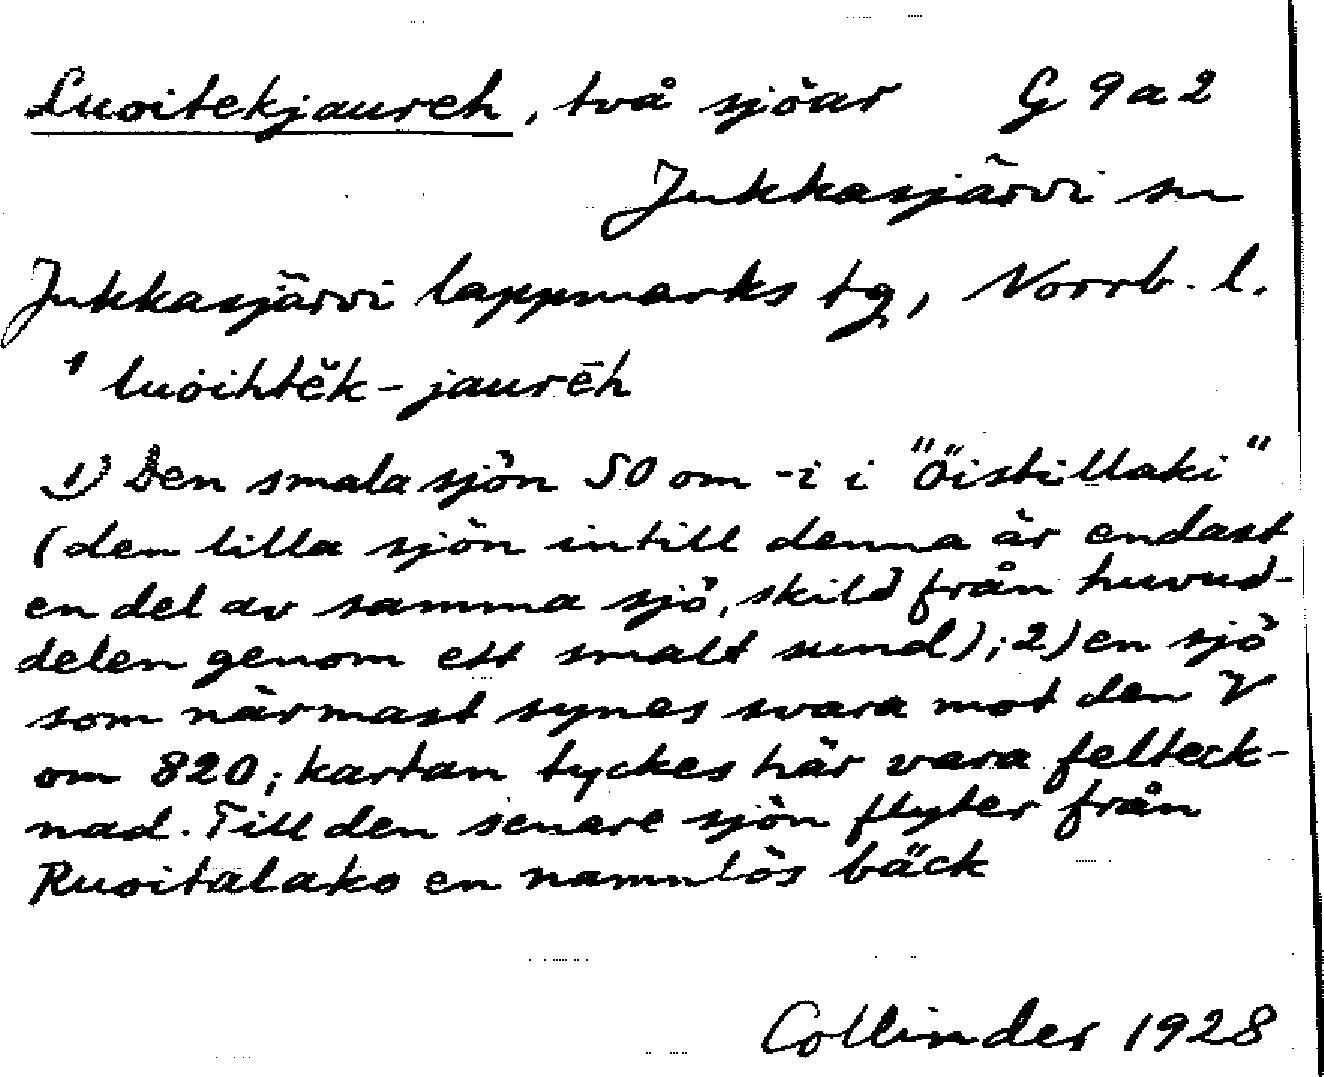 Luoitekjaureh, två sjöar G 9 a 2
Jukkasjärvi sn
Jukkasjärvi lappmarks tg, Norrb. l.
luoihtĕk-jaurēh
1) Den smala sjön SO om -i i "Öistillaki"
(den lilla sjön intill denna är endast
en del av samma sjö, skild från huvud-
delen genom ett smalt sund); 2) en sjö
som närmast synes svara mot den V
om 820; kartan tyckes här vara felteck-
nad. Till den senare sjön flyter från
Ruoitalako en namnlös bäck
Collinder 1928